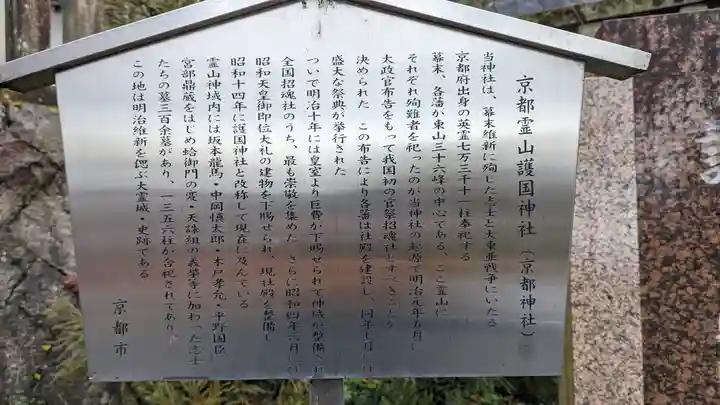 京都霊山護国神社（京都神社）
当神社は、幕末維新に殉じた志士と大東亜戦争にいたる
京都府出身の英霊七万三千十一柱奉祀する
幕末、各藩が東山三十六峰の中心である、ここ霊山に
それぞれ殉難者を祀ったのが当神社の起源で明治元年五月
太政官布告をもって我国初の官祭招魂社とすべきこと
決められた この布告により各藩は社殿を建設し、同年七月
盛大な祭典が挙行された
ついで明治十年には皇室より巨費が下賜せられて神域が整備され
全国招魂社のうち、最も崇敬を集めた さらに昭和四年六月
昭和天皇御即位大礼の建物を下賜せられ、現社殿を整備し
昭和十四年に護国神社と改称して現在に及んでいる
霊山神域内には坂本龍馬・中岡慎太郎・木戸孝允・平野国臣
宮部鼎蔵をはじめ蛤御門の変・天誅組の義挙等に加わった志士
たちの墓三百余墓があり、一三五六柱が合祀されてあり
この地は明治維新を偲ぶ大霊域・史跡である
京都市